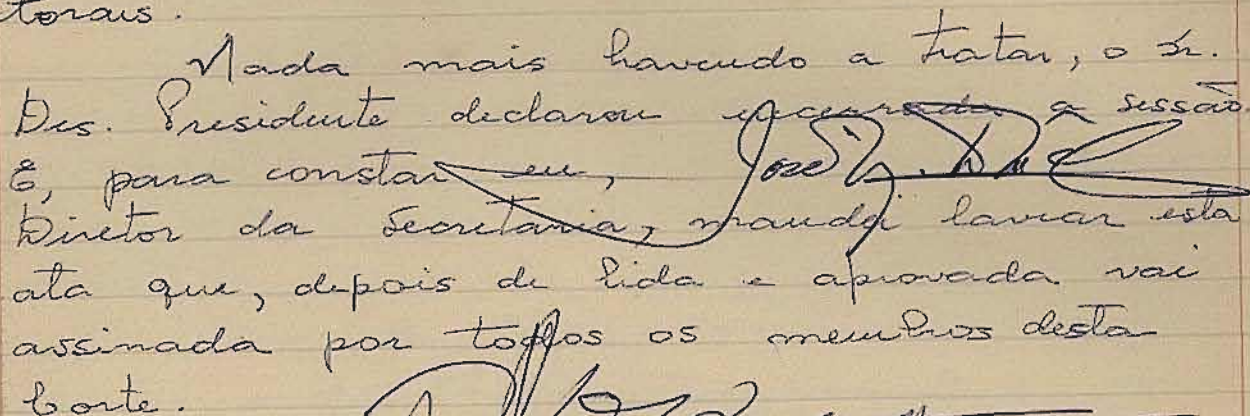 torais.
Nada mais havendo a tratar, o Sr.
Des. Presidente declarou encerrada a sessão
E, para constar eu,
Diretor da Secretaria, mandei lavrar esta
ata que, depois de lida e aprovada vai
assinada por todos os membros desta
Corte.